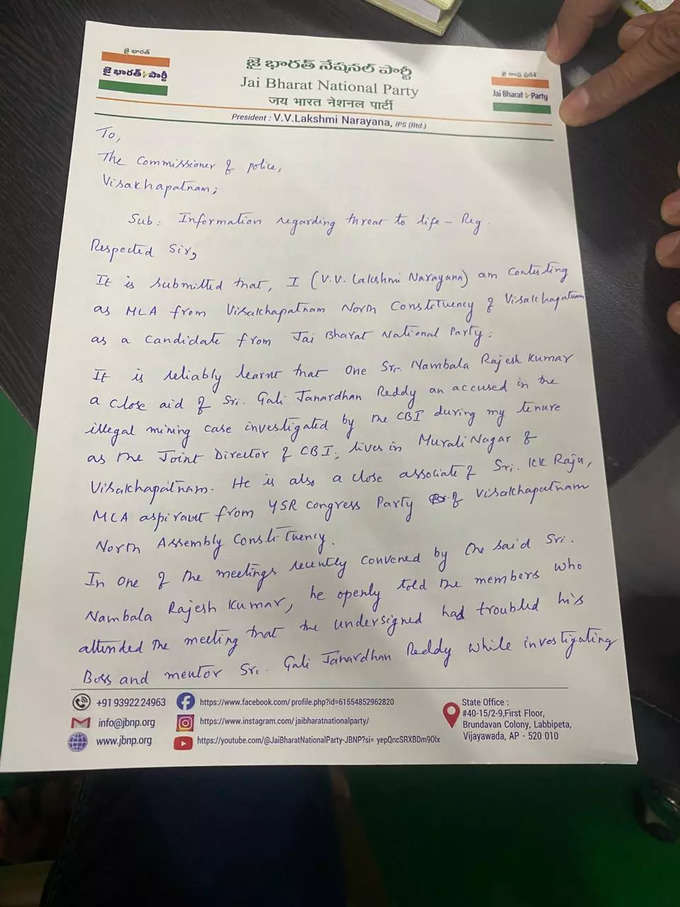 జై భారత్
జై భారత్ పార్టీ
జై భారత్ నేషనల్ పార్టీ
Jai Bharat National Party
जय भारत नेशनल पार्टी
Jai Bharat Party
President : V.V.Lakshmi Narayana, IPS (Rtd )
To,
The Commissioner of police,
Visakhapatnam;
Sub: Information regarding threat to life – Reg.
Respected Sir,
It is submitted that, I (V.V. Lakshmi Narayana) am contesting
as MLA from Visakhapatnam North Constituency of Visakhapatnam
as a candidate from Jai Bharat National Party.
It is reliably learnt that one Sri. Nambala Rajesh Kumar
a close aid of Sri. Gali Janardhan Reddy an accused in the
illegal mining case investigated by the CBI during my tenure
as the Joint Director of CBI, lives in Murali Nagar of
Visakhapatnam. He is also a close associate of Sri. KK Raju,
MLA aspirant from YSR Congress Party of Visakhapatnam
North Assembly Constituency.
In one of the meetings recently convened by the said Sri.
Nambala Rajesh Kumar, he openly told the members who
attended the meeting that the undersigned had troubled his
Boss and mentor Sri. Gali Janardhan Reddy while investigating
+91 9392224963
info@jbnp.org
www.jbnp.org
https://www.facebook.com/profile.php?id=61554852962820
https://www.instagram.com/jaibharatnationalparty/
https://youtube.com/@JaiBharatNationalParty-JBNP?si=yepQncSRXBDm90Ix
State Office :
#40-15/2-9,First Floor,
Brundavan Colony, Labbipeta,
Vijayawada, AP - 520 010